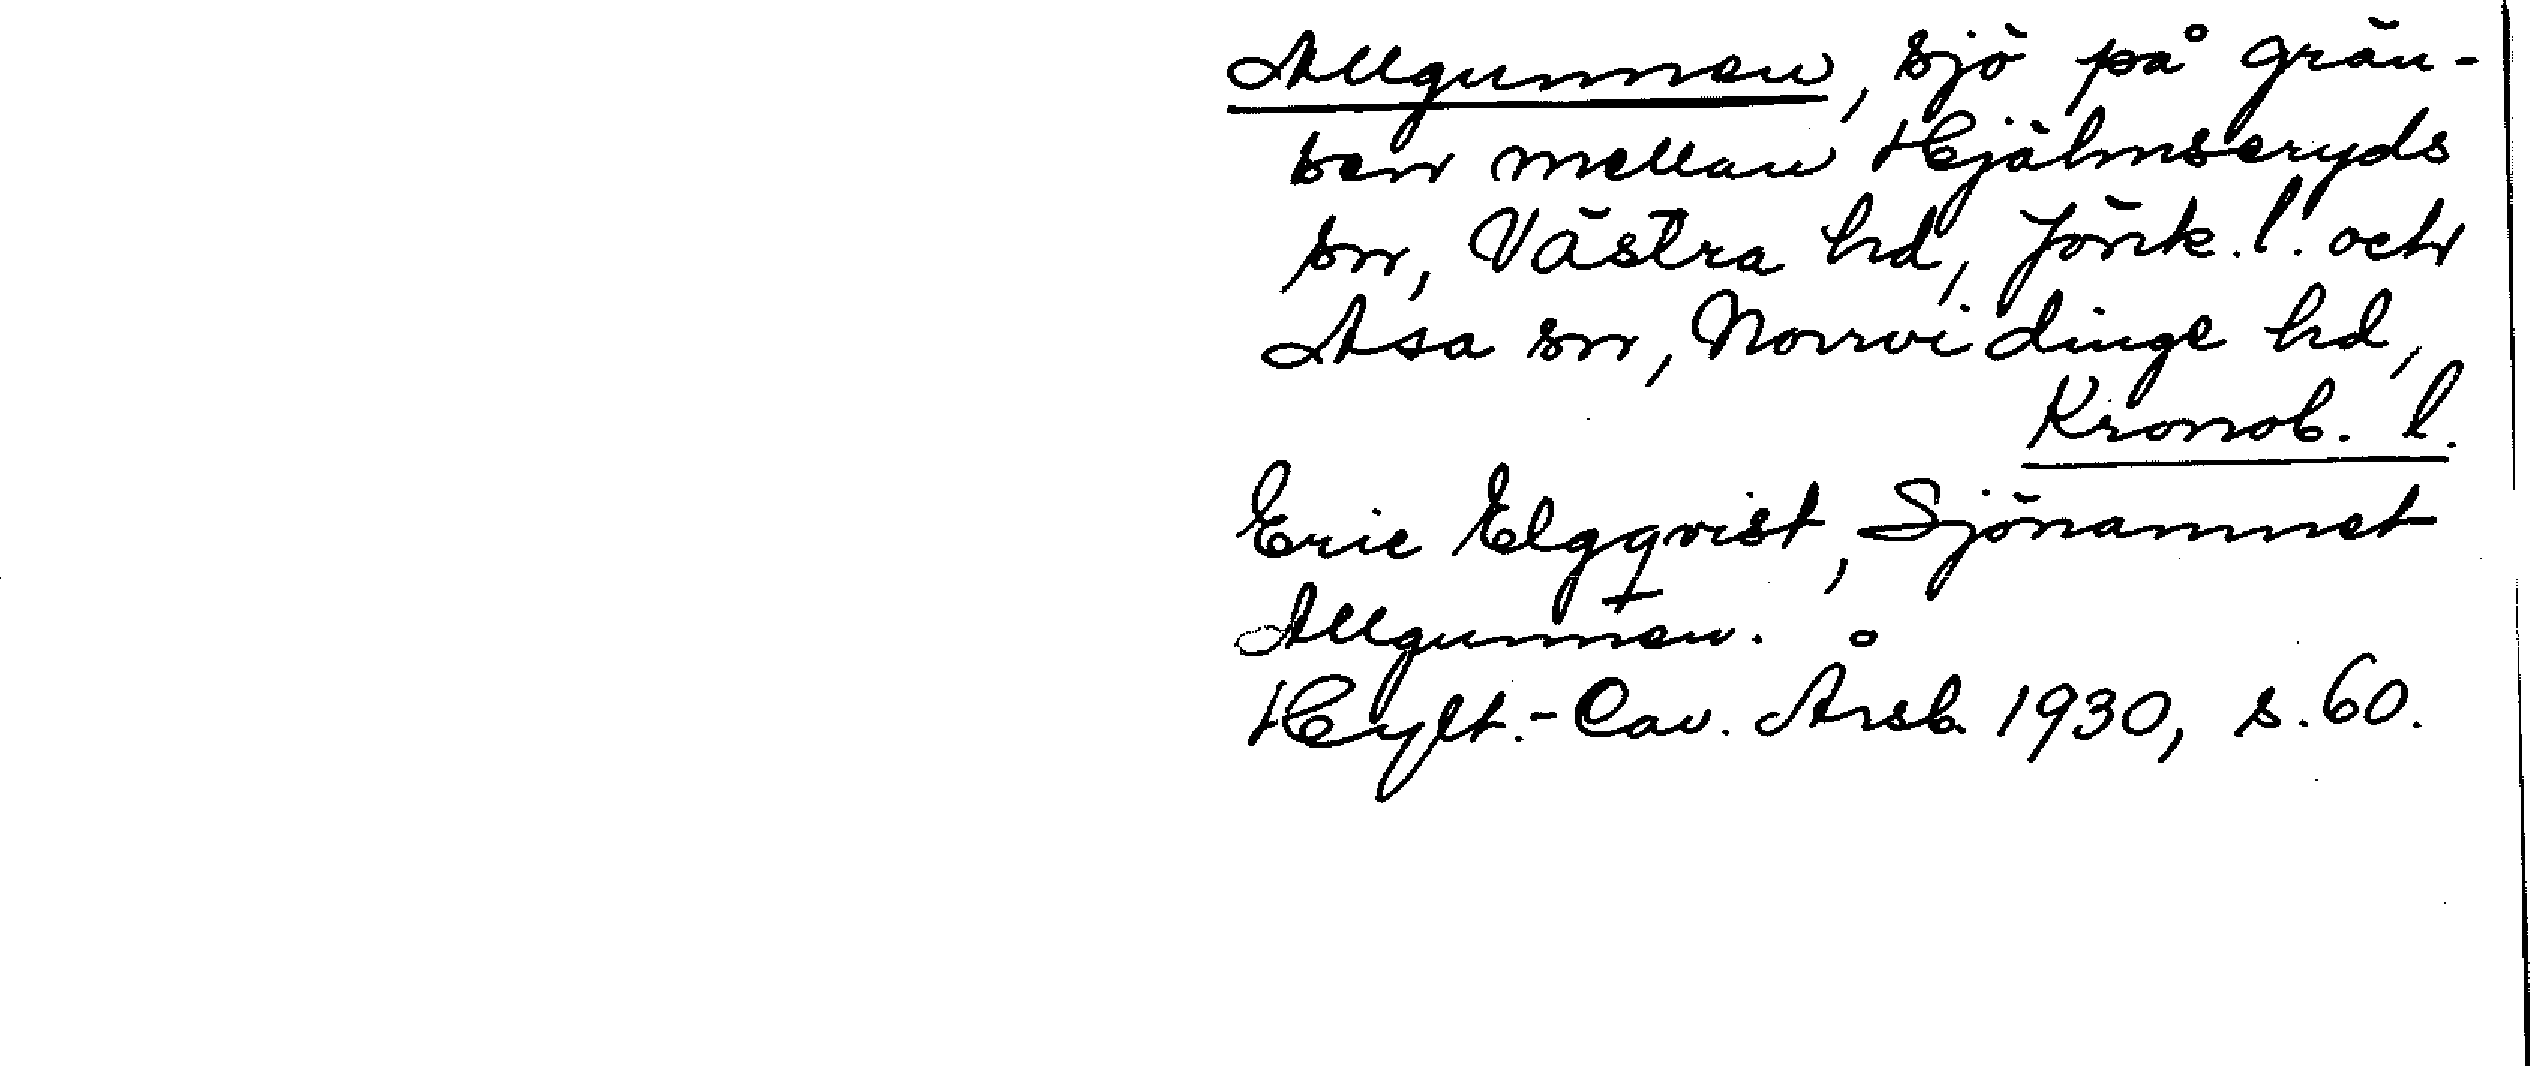 Allgunnen, sjö på grän-
sen mellan Hjälmseryds
sn, Västra hd, Jönk. l. och
Asa sn, Norrvidinge hd,
Kronob. l.
Eric Elgqvist, Sjönamnet
Allgunnen.
Hylt.-Cav. Årsb. 1930, s. 60.